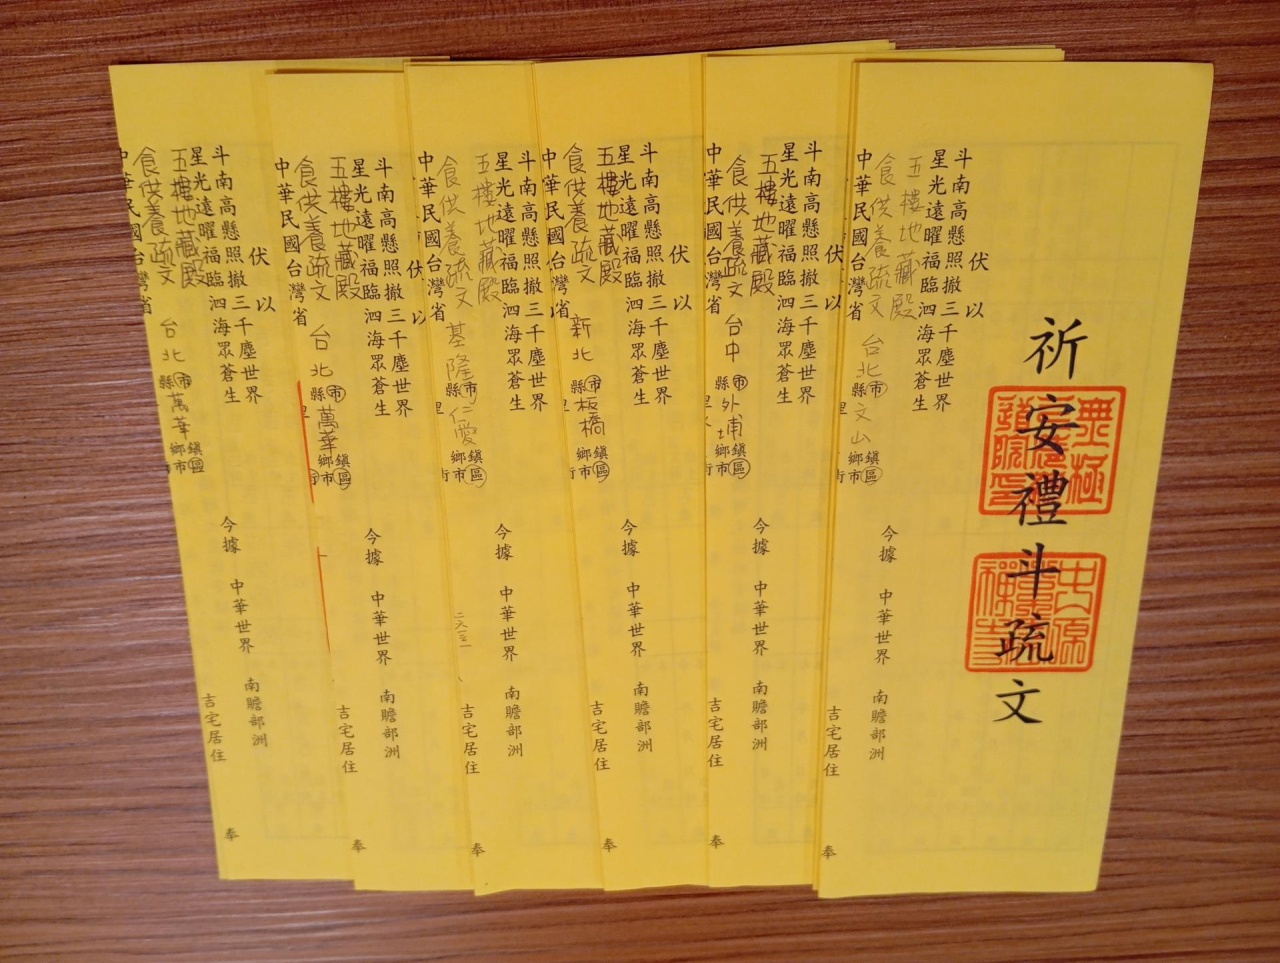 祈安禮斗疏文
無極
道院
伏以
斗南高懸照撤三千塵世界
星光遠曜福臨泗海眾蒼生
五樓地藏殿
食供養疏文
今據 中華世界 南贍部洲
中華民國台灣省 台北縣市 文山 鄉鎮市區
吉宅居住
奉
伏以
斗南高懸照撤三千塵世界
星光遠曜福臨泗海眾蒼生
五樓地藏殿
食供養疏文
今據 中華世界 南贍部洲
中華民國台灣省 台中縣市 外埔 鄉鎮市區
吉宅居住
奉
伏以
斗南高懸照撤三千塵世界
星光遠曜福臨泗海眾蒼生
五樓地藏殿
食供養疏文
今據 中華世界 南贍部洲
中華民國台灣省 新北縣市 板橋 鄉鎮市區
吉宅居住
奉
以
斗南高懸照撤三千塵世界
星光遠曜福臨泗海眾蒼生
五樓地藏殿
食供養疏文
今據 中華世界 南贍部洲
中華民國台灣省 基隆縣市 仁愛 鄉鎮市區
吉宅居住
奉
伏以
斗南高懸照撤三千塵世界
星光遠曜福臨泗海眾蒼生
五樓地藏殿
食供養疏文
今據 中華世界 南贍部洲
中華民國台灣省 台北縣市 萬華 鄉鎮市區
吉宅居住
奉
伏以
斗南高懸照撤三千塵世界
星光遠曜福臨泗海眾蒼生
五樓地藏殿
食供養疏文
今據 中華世界 南贍部洲
中華民國台灣省 台北縣市 萬華 鄉鎮市區
吉宅居住
奉